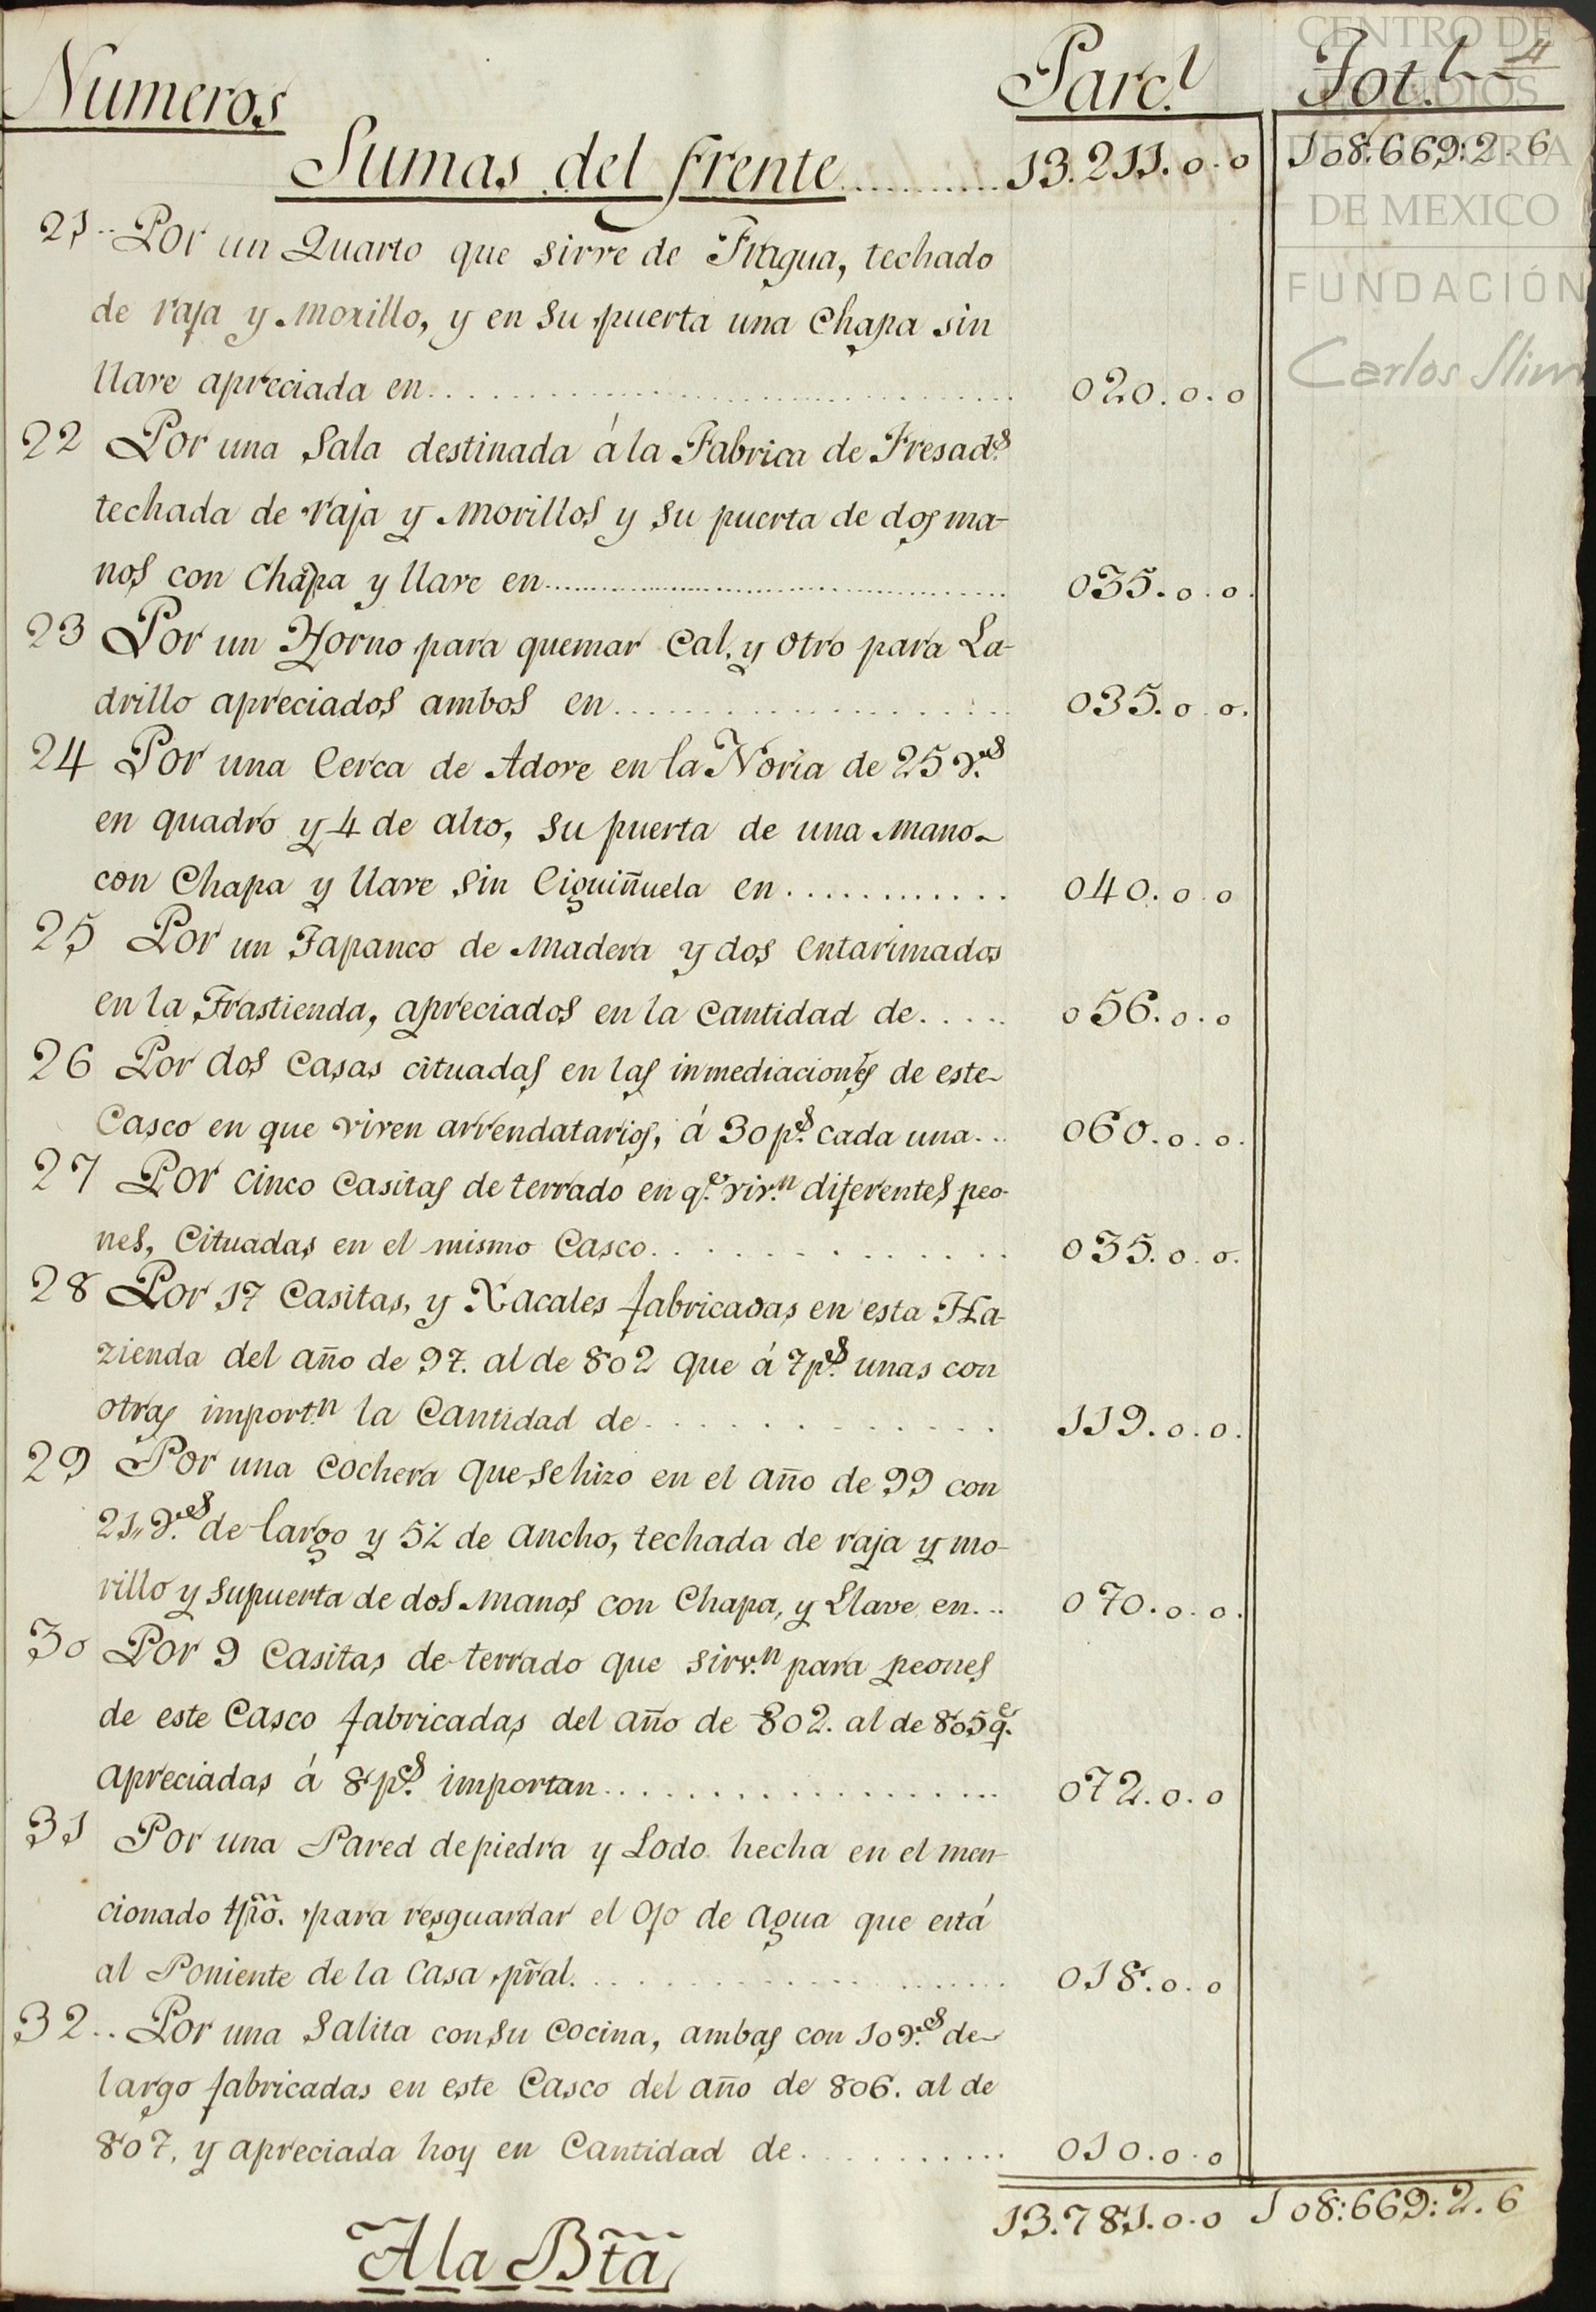 Numeros
Parc.l
Tot.l
4
CENTRO DE
ESTUDIOS
DE HISTORIA
DE MEXICO
FUNDACIÓN
Carlos Slim
Sumas del frente .......... 13.211.0.0 108:669:2.6
21.. Por un Quarto que sirve de Fragua, techado
de raja y morillo, y en su puerta una Chapa sin
llave apreciada en .......... 020.0.0
22 Por una Sala destinada á la Fabrica de Fresad.s
techada de raja y morillos y su puerta de dos ma-
nos con Chapa y llave en .......... 035.0.0.
23 Por un Horno para quemar Cal, y otro para La-
drillo apreciados ambos en .......... 035.0.0.
24 Por una Cerca de Adove en la Noria de 25 v.s
en quadro y 4 de alto, su puerta de una mano
con Chapa y llave sin Ciguiñuela en .......... 040.0.0
25 Por un Tapanco de madera y dos entarimados
en la Trastienda, apreciados en la Cantidad de ..... 056.0.0
26 Por dos Casas cituadas en las inmediaciones de este
Casco en que viven arrendatarios, á 30 p.s cada una... 060.0.0.
27 Por cinco Casitas de terrado en q.e viv.n diferentes peo-
nes, Cituadas en el mismo Casco .......... 035.0.0.
28 Por 17 Casitas, y Xacales fabricadas en esta Ha-
zienda del año de 97. al de 802 que á 7 p.s unas con
otras import.n la Cantidad de .......... 119.0.0.
29 Por una Cochera que se hizo en el año de 99 con
21,, v.s de largo y 5½ de ancho, techada de raja y mo-
rillo y su puerta de dos manos con Chapa, y Llave en... 070.0.0.
30 Por 9 Casitas de terrado que sirv.n para peones
de este Casco fabricadas del año de 802. al de 805 q.e
apreciadas á 8 p.s importan .......... 072.0.0
31 Por una Pared de piedra y Lodo hecha en el men-
cionado tpõ. para resguardar el Ojo de agua que está
al Poniente de la Casa pr̃al. .......... 018.0.0
32.. Por una Salita con su Cocina, ambas con 10 v.s de
largo fabricadas en este Casco del año de 806. al de
807, y apreciada hoy en Cantidad de .......... 010.0.0
13.781.0.0 108:669:2.6
A la Btã